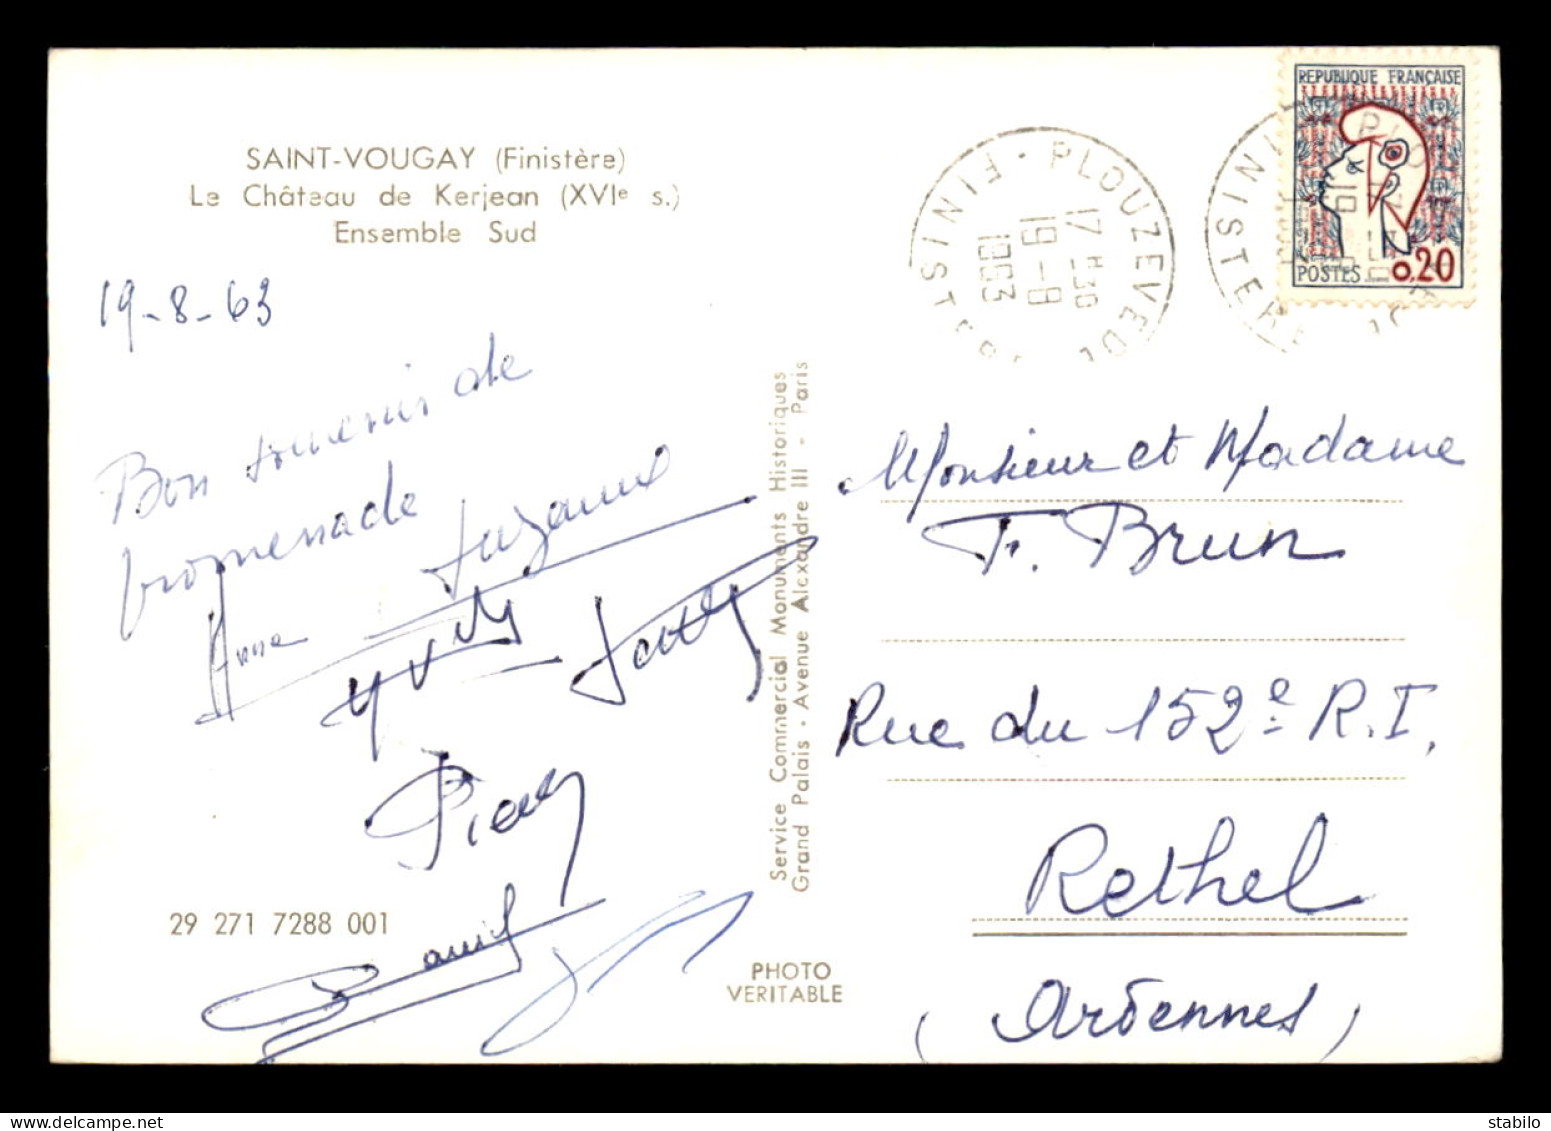 SAINT-VOUGAY (Finistère)
Le Château de Kerjean (XVIe s.)
Ensemble Sud
19-8-63
Bon souvenir de
promenade
Anne
29 271 7288 001
Service Commercial Monuments Historiques
Grand Palais - Avenue Alexandre III - Paris
PHOTO
VERITABLE
PLOUZEVEDE
FINISTERE
17H30
19-8
1963
REPUBLIQUE FRANÇAISE
POSTES 0,20
Monsieur et Madame
F. Brun
Rue du 152e R.I.
Rethel
(Ardennes)
delcampe.net
stabilo